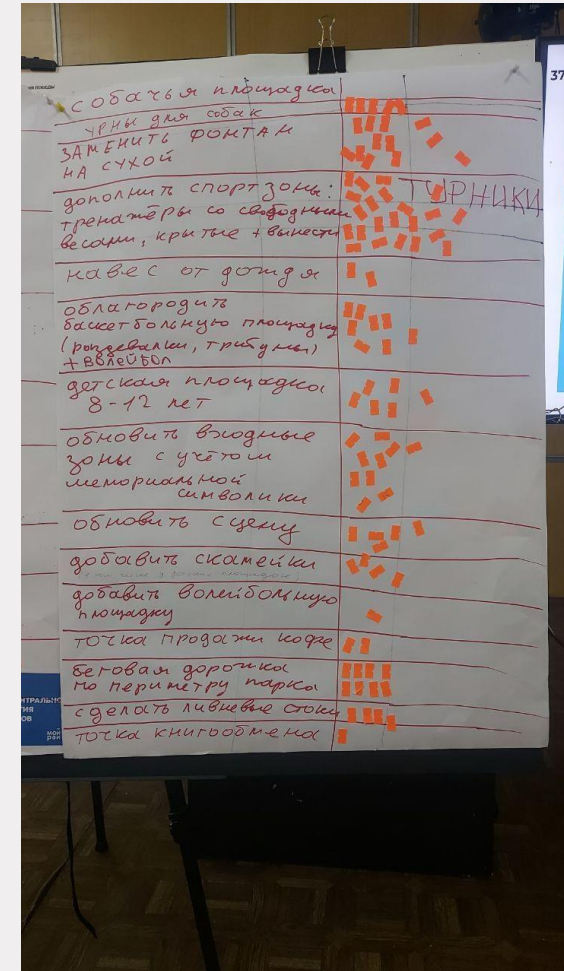 собачья площадка
урны для собак
ЗАМЕНИТЬ ФОНТАН
НА СУХОЙ
дополнить спорт зоны:
ТУРНИКИ
тренажёры со свободными
весами, крытые + вынести
навес от дождя
облагородить
баскетбольную площадку
(раздевалки, трибуны)
+ волейбол
детская площадка
8-12 лет
обновить входные
зоны с учётом
мемориальной
символики
обновить сцену
добавить скамейки
добавить волейбольную
площадку
точка продажи кофе
беговая дорожка
по периметру парка
сделать ливневые стоки
точка книгообмена
37